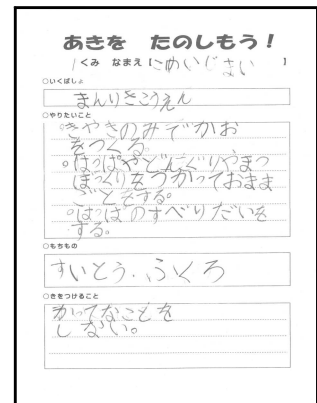 あきを たのしもう!
1くみ なまえ【 】
○いくばしょ
まんりきこうえん
○やりたいこと
。きやきのみでかお
をつくる。
。はっぱやどんぐりやまつ
ぼっくりをつかっておまま
ごとをする。
。はっぱのすべりだいを
する。
○もちもの
すいとう、ふくろ
○きをつけること
かってなことを
しない。